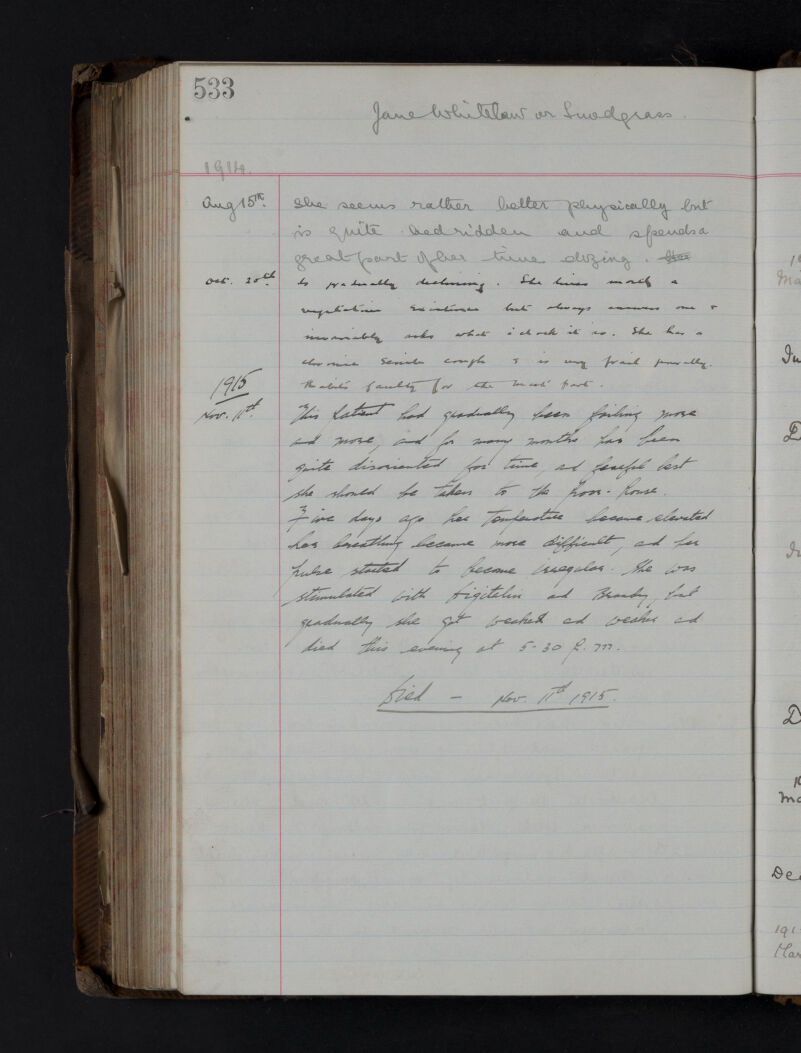 533
Jane Whitelaw or Snodgrass.
1914.
Aug 15th. She seems rather better physically but
is quite bedridden and spends a
great part of her time dozing.
Oct. 20th Is gradually declining. She lives merely a
vegetative existence but always answers one &
invariably asks what o'clock it is. She has a
chronic senile cough & is very frail generally.
Habits faulty for the most part.
1915
Nov. 11th. This Patient had gradually been failing more
and more, and for many months has been
quite disoriented for time, and fearful lest
she should be taken to the poor-house.
Five days ago her temperature became elevated
her breathing became more difficult, and her
pulse started to become irregular. She was
stimulated with Digitalin and Brandy, but
gradually she got weaker and weaker and
died this evening at 5-30 P.m.
Died - Nov. 11th 1915.
Ma
D
D
Ma
Dec
191
Mar